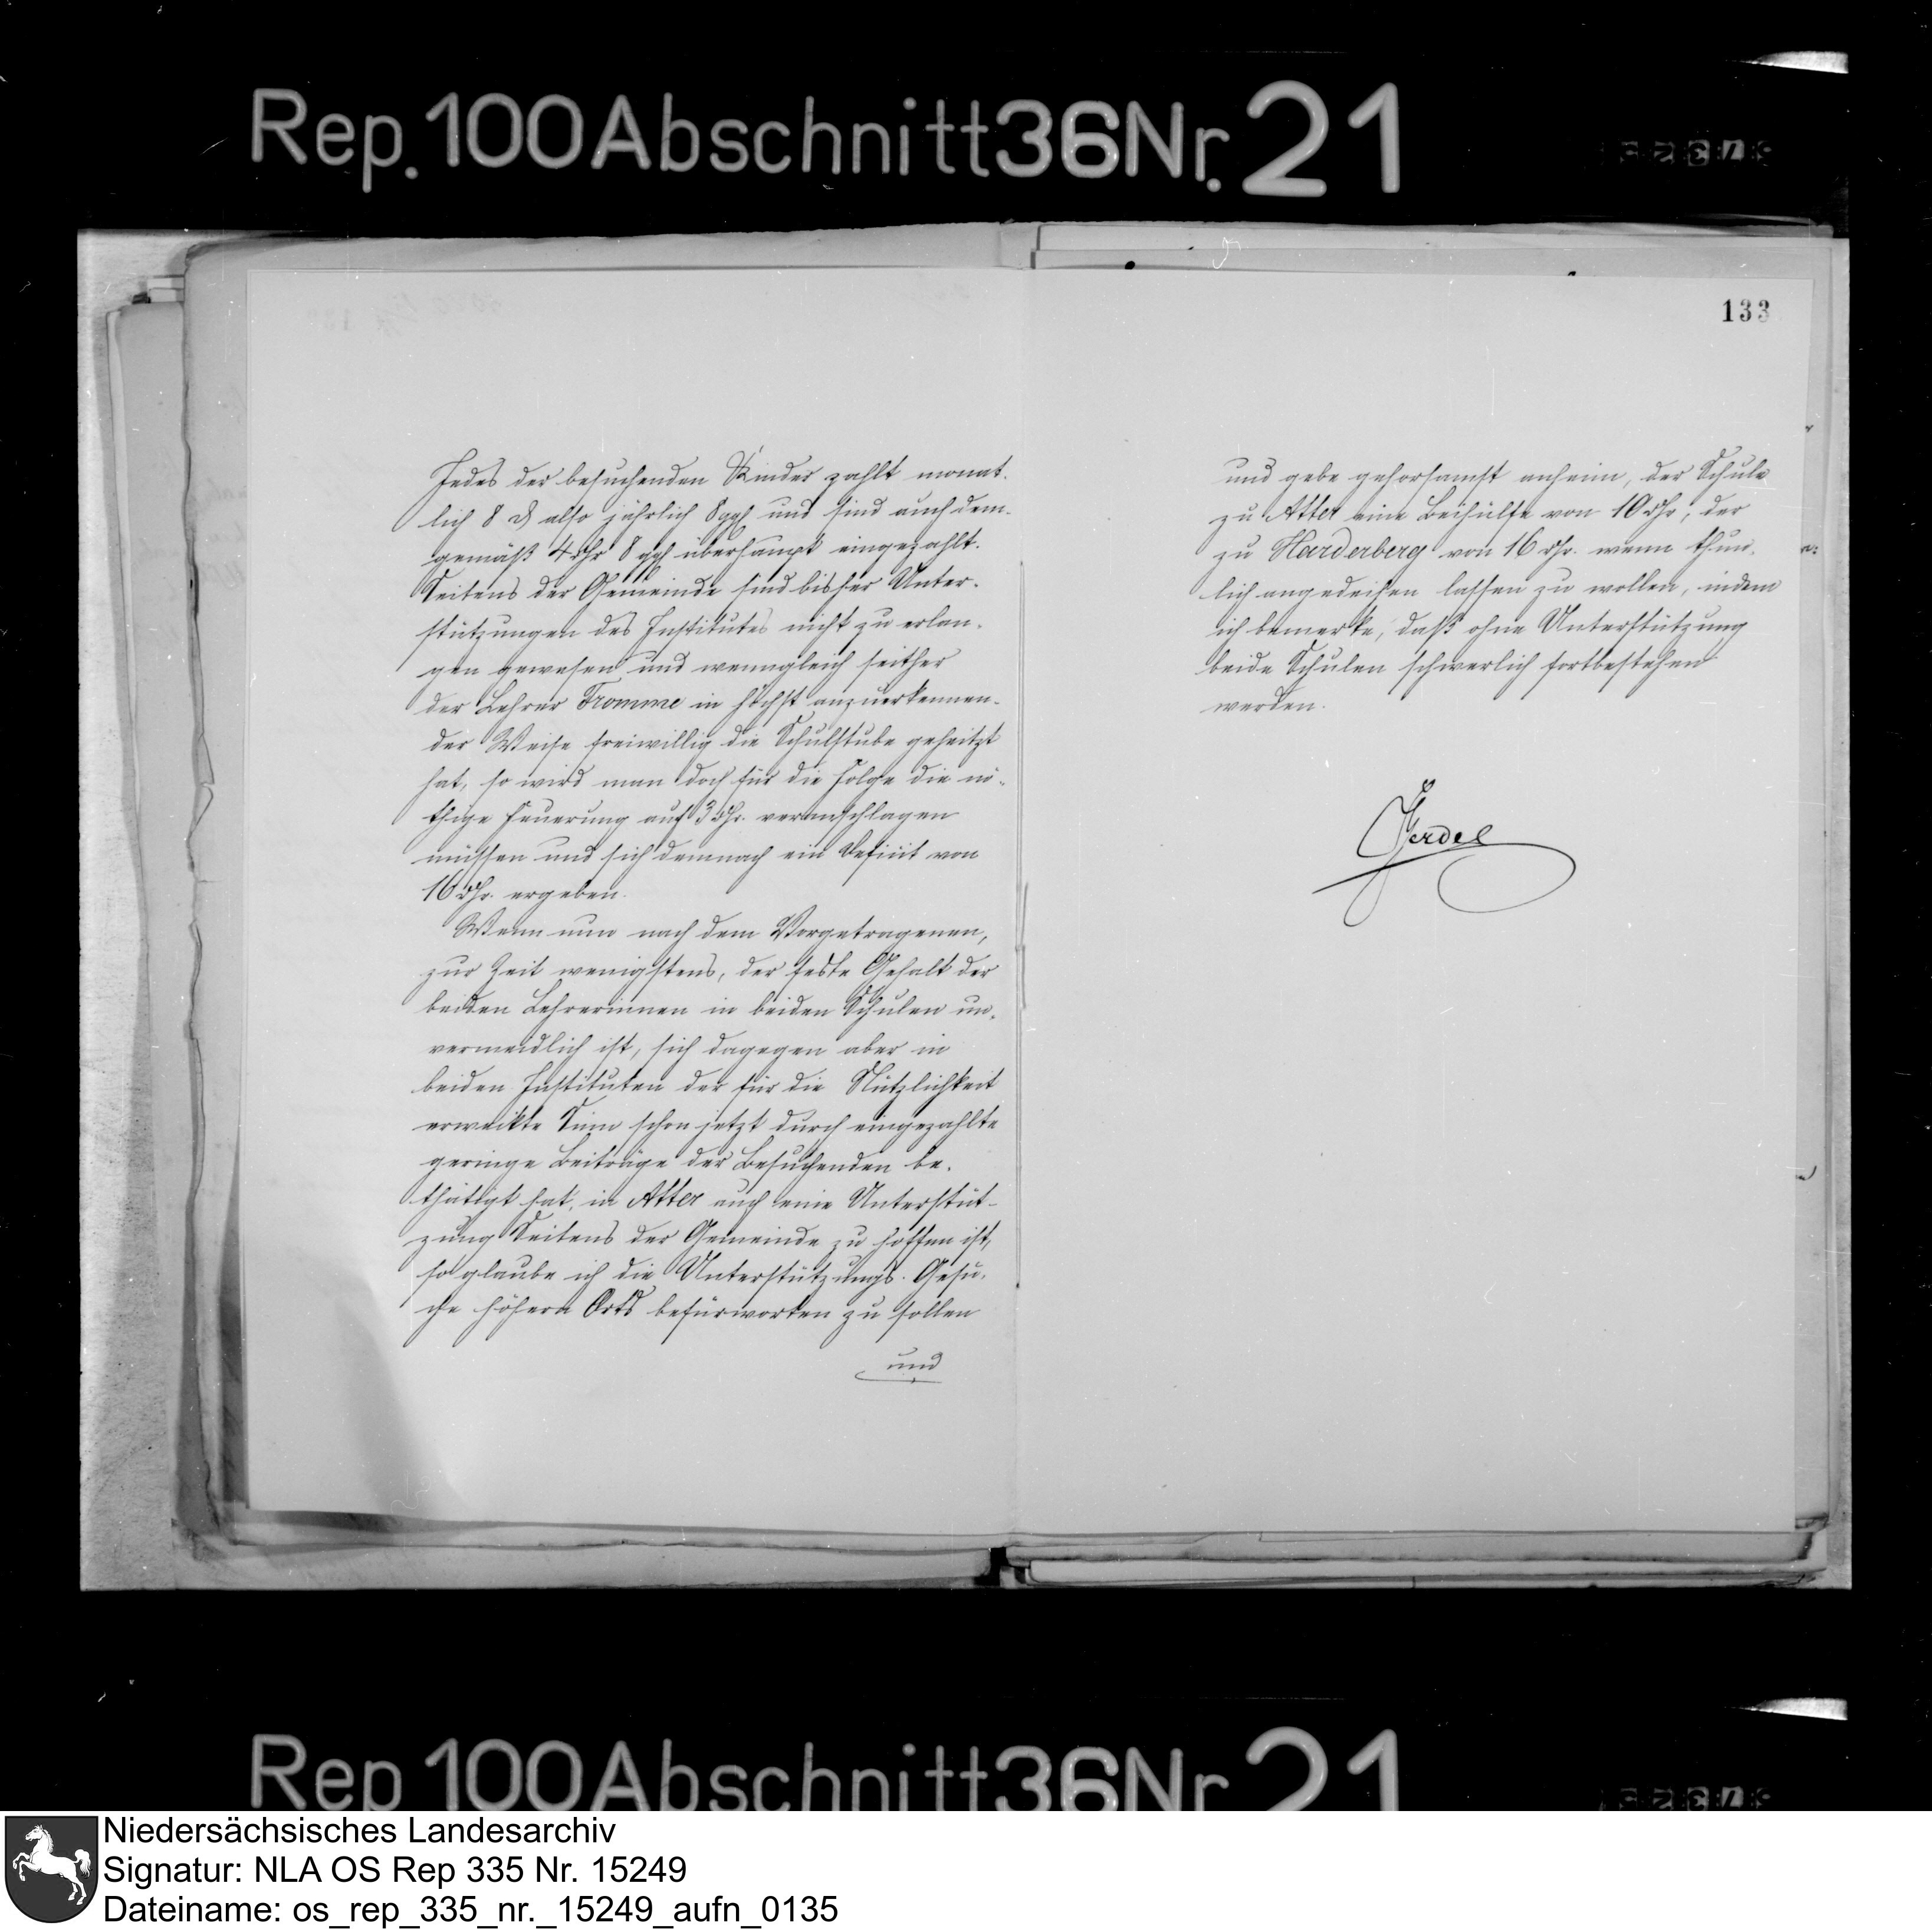 Rep. 100 Abschnitt 36 Nr. 21
133
Jedes der besuchenden Kinder zahlt monat-
lich 8 d also jährlich 8 ggl und sind auch dem-
gemäß 4 Thr 8 ggl überhaupt eingezahlt.
Seitens der Gemeinde sind bisher Unter-
stützungen des Institutes nicht zu erlan-
gen gewesen und wenngleich seither
der Lehrer Fromme in höchst anzuerkennen-
der Weise freiwillig die Schulstube geheitzt
hat, so wird man doch für die Folge die nö-
thige Feuerung auf 3 Thr. veranschlagen
müssen und sich demnach ein Deficit von
16 Thr. ergeben.
Wenn nun nach dem Vorgetragenen,
zur Zeit wenigstens, der feste Gehalt der
beiden Lehrerinnen in beiden Schulen un-
vermeidlich ist, sich dagegen aber in
beiden Instituten der für die Nützlichkeit
erweckte Sinn schon jetzt durch eingezahlte
geringe Beiträge der Besuchenden be-
thätigt hat, in Atter auch eine Unterstüt-
zung Seitens der Gemeinde zu hoffen ist,
so glaube ich die Unterstützungs-Gesu-
che höhern Orts befürworten zu sollen
und
und gebe gehorsamst anheim, der Schule
zu Atter eine Beihülfe von 10 Thr, der
zu Harderberg von 16 Thr. wenn thun-
lich angedeihen lassen zu wollen, indem
ich bemerke, daß ohne Unterstützung
beide Schulen schwerlich fortbestehen
werden.
Rep 100 Abschnitt 36 Nr 21
Niedersächsisches Landesarchiv
Signatur: NLA OS Rep 335 Nr. 15249
Dateiname: os_rep_335_nr._15249_aufn_0135